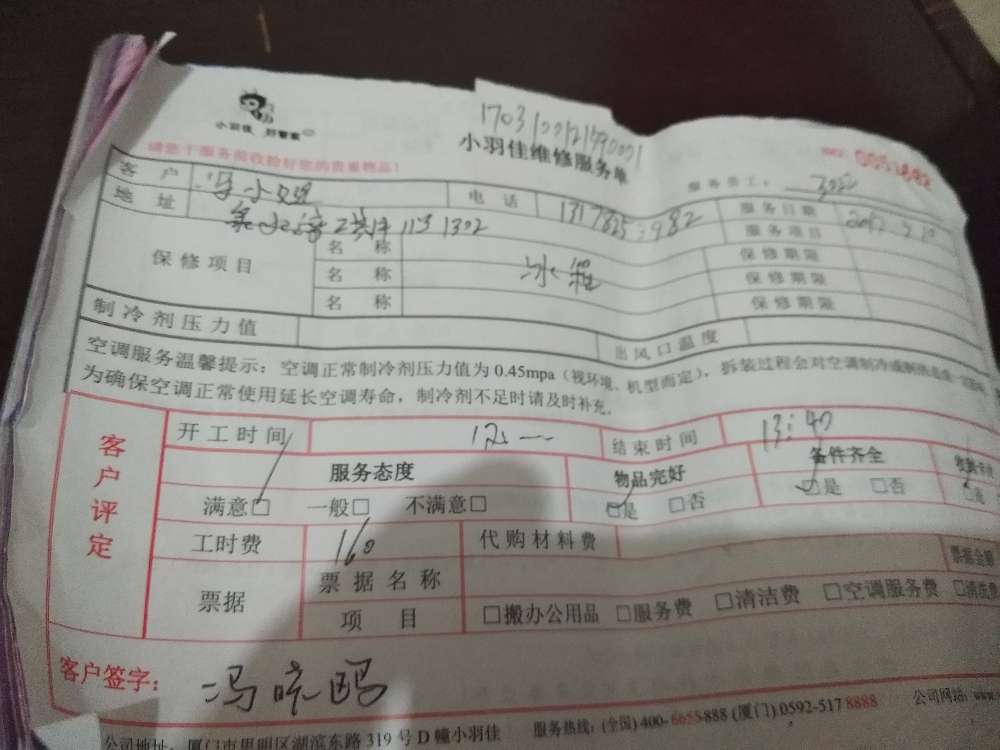 小羽佳 好管家
17031001211490001
小羽佳维修服务单
请您于服务前收捡好您的贵重物品!
服务员工:
客 户 冯小姐 电 话 服务日期
地 址 1302 服务项目
保修项目 名 称 冰箱 保修期限
名 称 保修期限
名 称 保修期限
制冷剂压力值 出风口温度
空调服务温馨提示:空调正常制冷剂压力值为 0.45mpa(视环境、机型而定),拆装过程会对空调制冷
为确保空调正常使用延长空调寿命,制冷剂不足时请及时补充。
客户评定
开工时间 结束时间 13:40
服务态度 物品完好 备件齐全
满意□ 一般□ 不满意□ □是 □否 □是 □否
工时费 160 代购材料费
票据 票据名称 票据金额
项 目 □搬办公用品 □服务费 □清洁费 □空调服务费 □清洗费
客户签字: 冯
公司地址:厦门市思明区湖滨东路 319 号 D 幢小羽佳 服务热线:(全国)400-6655-888 (厦门)0592-517 8888 公司网站:www.